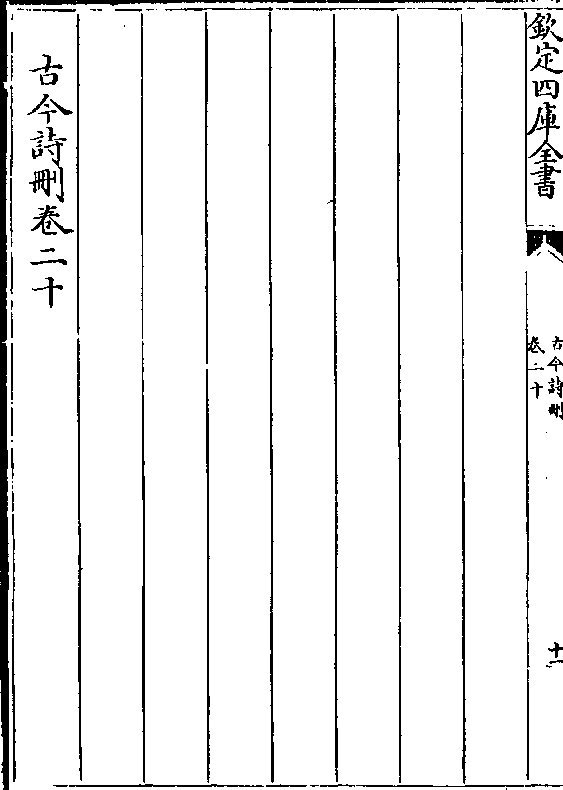 欽定四庫全書
古今詩刪
卷二十
十一
古今詩刪卷二十